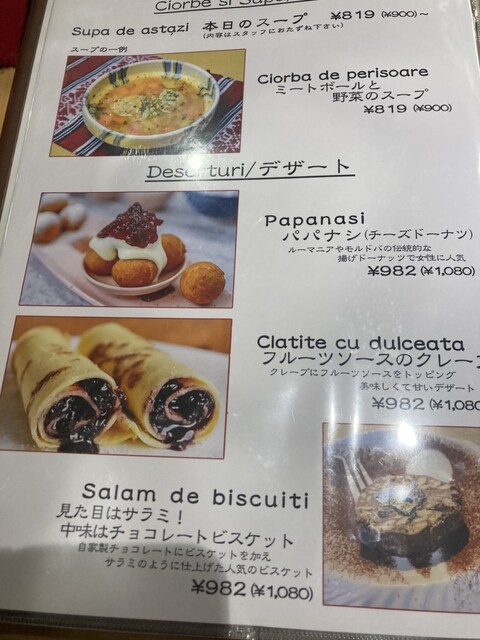 Ciorbe si Supe
Supa de astazi 本日のスープ ¥819 (¥900)～
(内容はスタッフにおたずね下さい)
スープの一例
Ciorba de perisoare
ミートボールと
野菜のスープ
¥819 (¥900)
Deserturi/デザート
Papanasi
パパナシ(チーズドーナツ)
ルーマニアやモルドバの伝統的な
揚げドーナッツで女性に人気
¥982 (¥1,080)
Clatite cu dulceata
フルーツソースのクレープ
クレープにフルーツソースをトッピング
美味しくて甘いデザート
¥982 (¥1,080
Salam de biscuiti
見た目はサラミ！
中味はチョコレートビスケット
自家製チョコレートにビスケットを加え
サラミのように仕上げた人気のビスケット
¥982 (¥1,080)